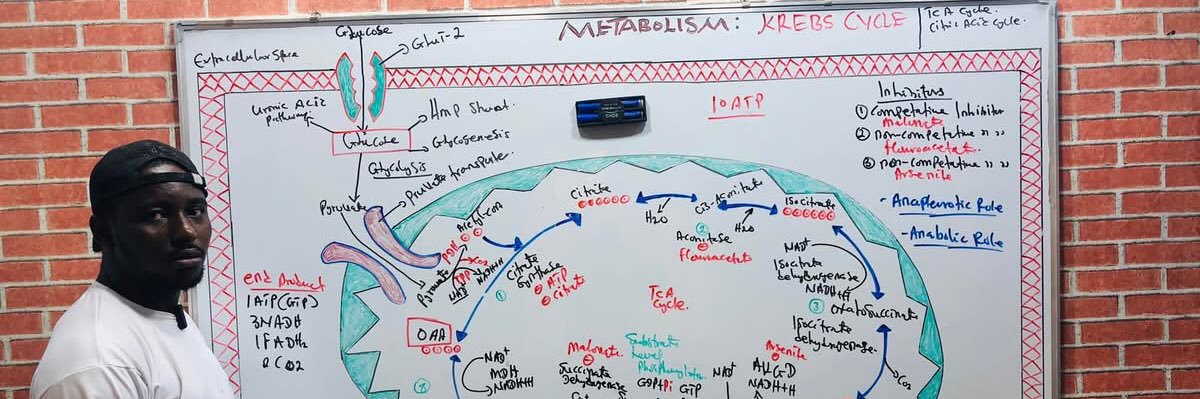 METABOLISM: KREBS CYCLE
TCA Cycle.
Citric Acid Cycle.
Extracellular Space
Glucose
Glut-2
Uronic Acid
pathway
HMP Shunt.
Glucose
Glycogenesis
Glycolysis
Pyruvate
10 ATP
Inhibitors
① Competative Inhibitor
Malonate
② non-competative " "
Flouroacetate
③ non-competative " "
Arsenite
- Anaplerotic Role
- Anabolic Role
end Product
1 ATP (GTP)
3NADH
1FADH₂
2CO2
Pyruvate
PDH
TPP
CO2
NAD⁺
NADH+H
Acetyl-CoA
Citrate
Synthase
①
⊖ ATP
⊖ Citrate
Citrate
H2O
Cis-Aconitate
②
Aconitase
⊖
Flouroacetate
H2O
Isocitrate
NAD⁺
Isocitrate
dehydrogenase
NADH+H
③
Oxalosuccinate
Isocitrate
dehydrogenase.
CO2
TCA
Cycle.
OAA
NAD⁺
MDH
NADH+H
Malonate.
⊖
Succinate
Dehydrogenase
Substrate
Level
GDP+Pi GTP
NAD⁺
Arsenite
⊖
NADH+H